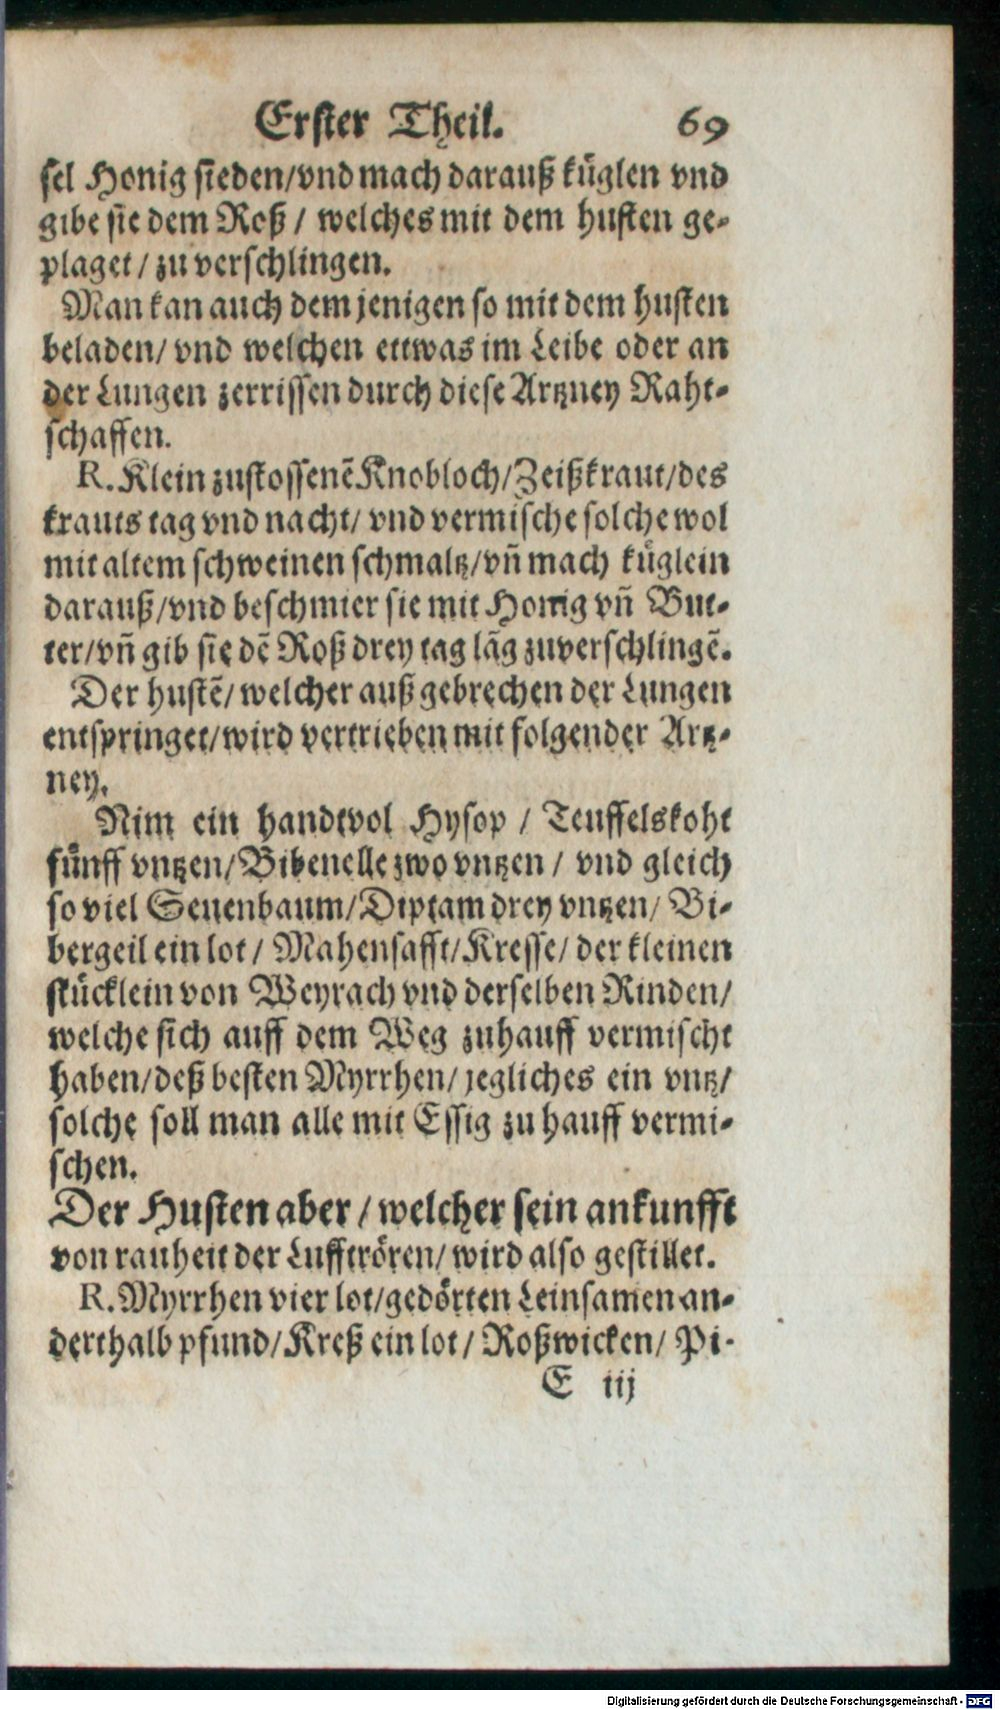 Erster Theil. 69
sel Honig sieden/vnd mach darauß kůglen vnd
gibe sie dem Roß / welches mit dem husten ge-
plaget / zu verschlingen.
Man kan auch dem jenigen so mit dem husten
beladen/ vnd welchen ettwas im Leibe oder an
der Lungen zerrissen durch diese Artzney Raht-
schaffen.
R. Klein zustossenẽ Knobloch/Zeißkraut/des
krauts tag vnd nacht/ vnd vermische solche wol
mit altem schweinen schmaltz/vñ mach kůglein
darauß/vnd beschmier sie mit Honig vñ But-
ter/vñ gib sie dẽ Roß drey tag lãg zuverschlingẽ.
Der hustẽ/ welcher auß gebrechen der Lungen
entspringet/wird vertrieben mit folgender Artz-
ney.
Nim ein handtvol Hysop / Teuffelskoht
fůnff vntzen/Bibenelle zwo vntzen / vnd gleich
so viel Seuenbaum/Diptam drey vntzen/ Bi-
bergeil ein lot / Mahensafft/Kresse/ der kleinen
stůcklein von Weyrach vnd derselben Rinden/
welche sich auff dem Weg zuhauff vermischt
haben/deß besten Myrrhen/ jegliches ein vntz/
solche soll man alle mit Essig zu hauff vermi-
schen.
Der Husten aber / welcher sein ankunfft
von rauheit der Lufftrören/ wird also gestillet.
R. Myrrhen vier lot/gedörten Leinsamen an-
derthalb pfund/Kreß ein lot / Roßwicken/ Pi-
E iij
Digitalisierung gefördert durch die Deutsche Forschungsgemeinschaft - DFG